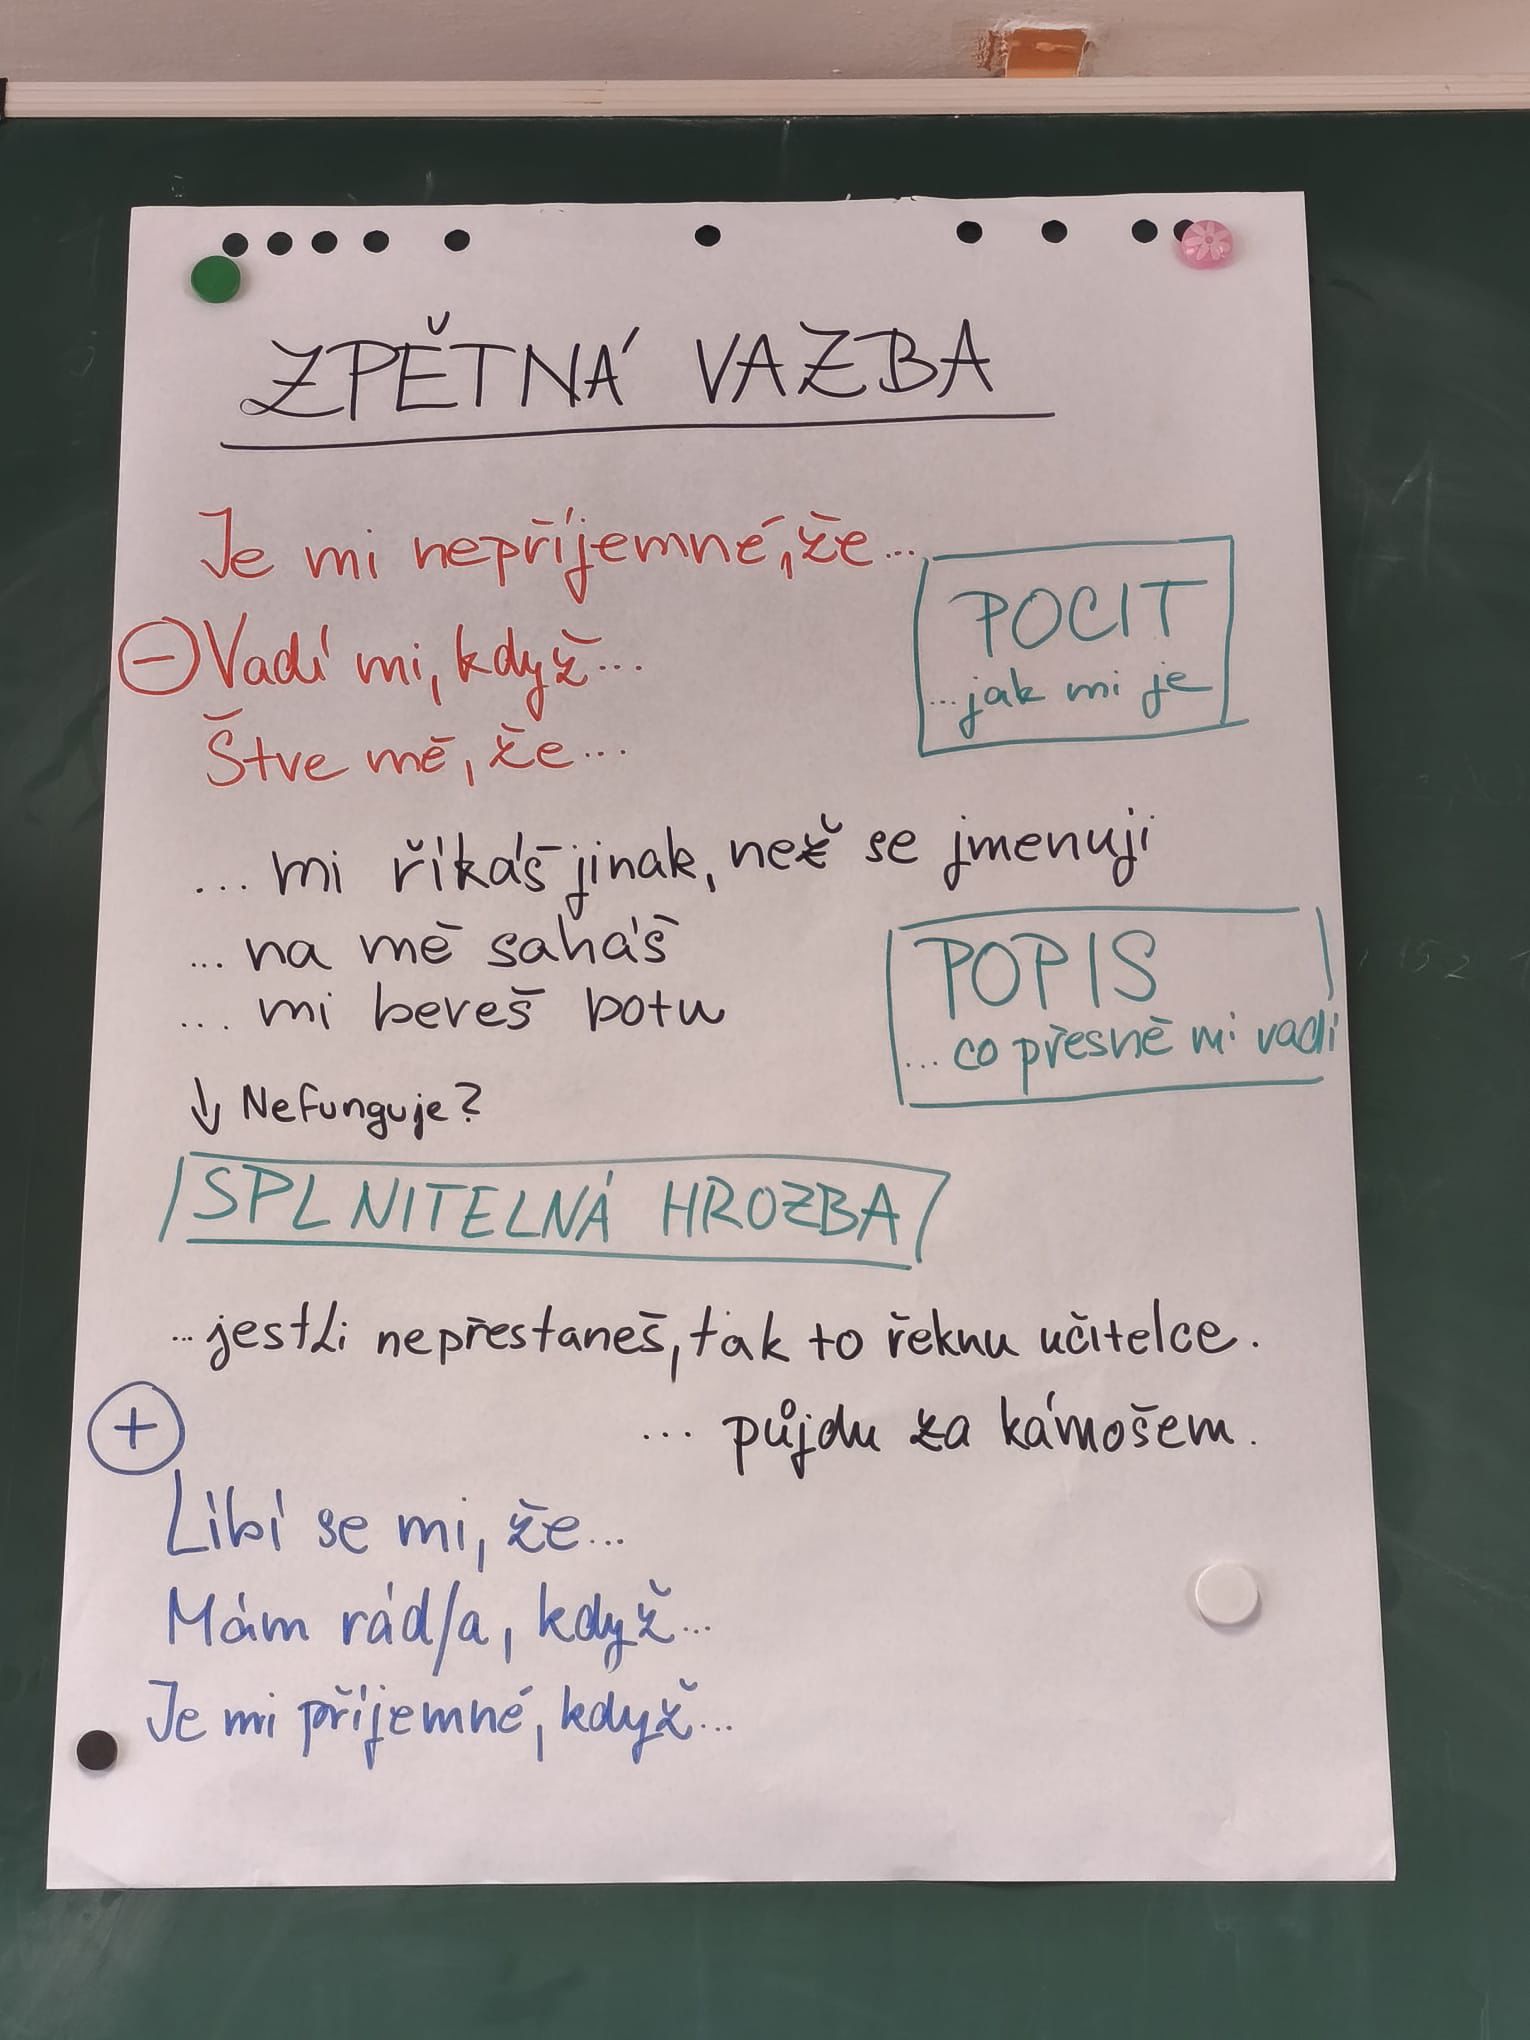 ZPĚTNÁ VAZBA
Je mi nepříjemné, že...
⊖ Vadí mi, když...
Štve mě, že...
POCIT
...jak mi je
... mi říkáš jinak, než se jmenuji
... na mě saháš
... mi bereš botu
POPIS
... co přesně mi vadí
↓ Nefunguje?
SPLNITELNÁ HROZBA
...jestli nepřestaneš, tak to řeknu učitelce.
... půjdu za kámošem.
⊕
Líbí se mi, že...
Mám rád/a, když...
Je mi příjemné, když...